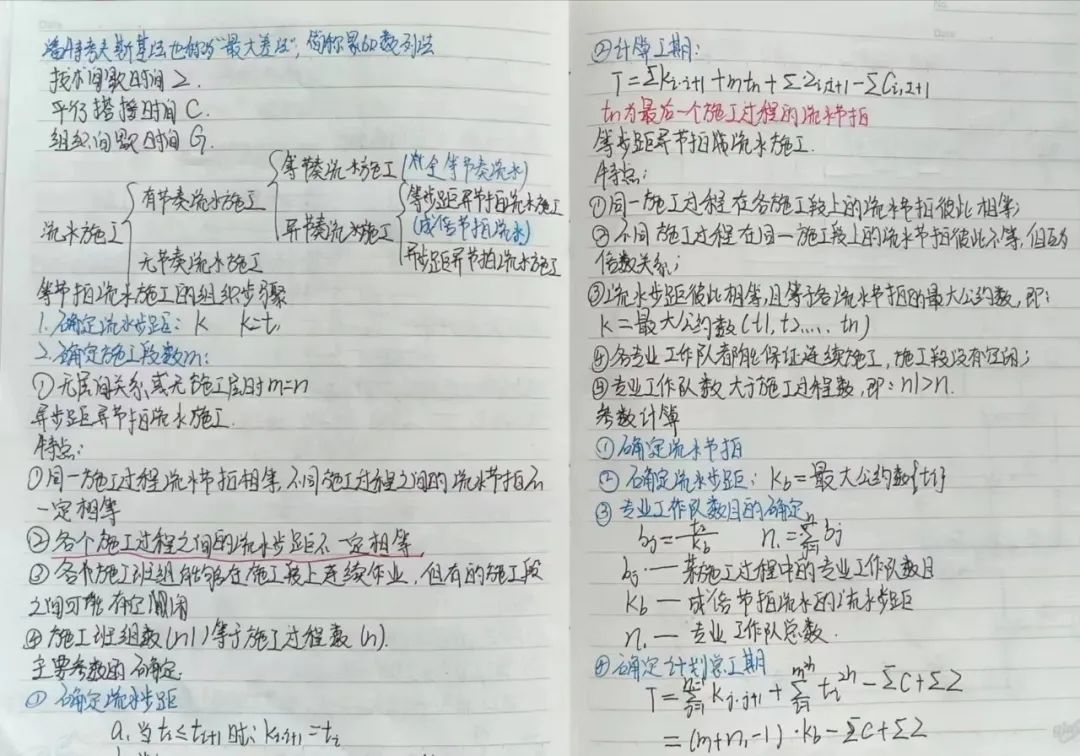 潘特考夫斯基法也称为"最大差法",简称累加数列法
技术间歇时间Z.
平行搭接时间C.
组织间歇时间G.
流水施工
有节奏流水施工
无节奏流水施工
等节奏流水施工(称全等节奏流水)
异节奏流水施工
等步距异节拍流水施工
(成倍节拍流水)
异步距异节拍流水施工
等节拍流水施工的组织步骤
1.确定流水步距: K K=t.
2.确定施工段数m:
①无层间关系,或无施工层时m=n
异步距异节拍流水施工.
特点:
①同一施工过程流水节拍相等,不同施工过程之间的流水节拍不
一定相等
②各个施工过程之间的流水步距不一定相等
③各个施工班组能够在施工段上连续作业,但有的施工段
之间可能有空闲
④施工班组数(n1)等于施工过程数(n).
主要参数的确定.
①确定流水步距
a.当ti≤ti+1时: Ki.i+1=ti
②计算工期:
T=ΣKi.i+1+mtn+ΣZi,i+1-ΣCi,i+1
tn为最后一个施工过程的流水节拍
等步距异节拍流水施工.
特点:
①同一施工过程在各施工段上的流水节拍彼此相等;
②不同施工过程在同一施工段上的流水节拍彼此不等,但互为
倍数关系;
③流水步距彼此相等,且等于各流水节拍的最大公约数,即:
K=最大公约数(t1,t2....tn)
④各专业工作队都能保证连续施工,施工段没有空闲;
⑤专业工作队数大于施工过程数,即:n1>n.
参数计算
①确定流水节拍
②确定流水步距: Kb=最大公约数{ti}
③专业工作队数目的确定
bj=ti/Kb n1=Σbj
bj—某施工过程中的专业工作队数目
Kb—成倍节拍流水的流水步距
n1—专业工作队总数.
④确定计划总工期
T=ΣKj.j+1+Σti^zh-ΣC+ΣZ
=(m+n1-1)·Kb-ΣC+ΣZ